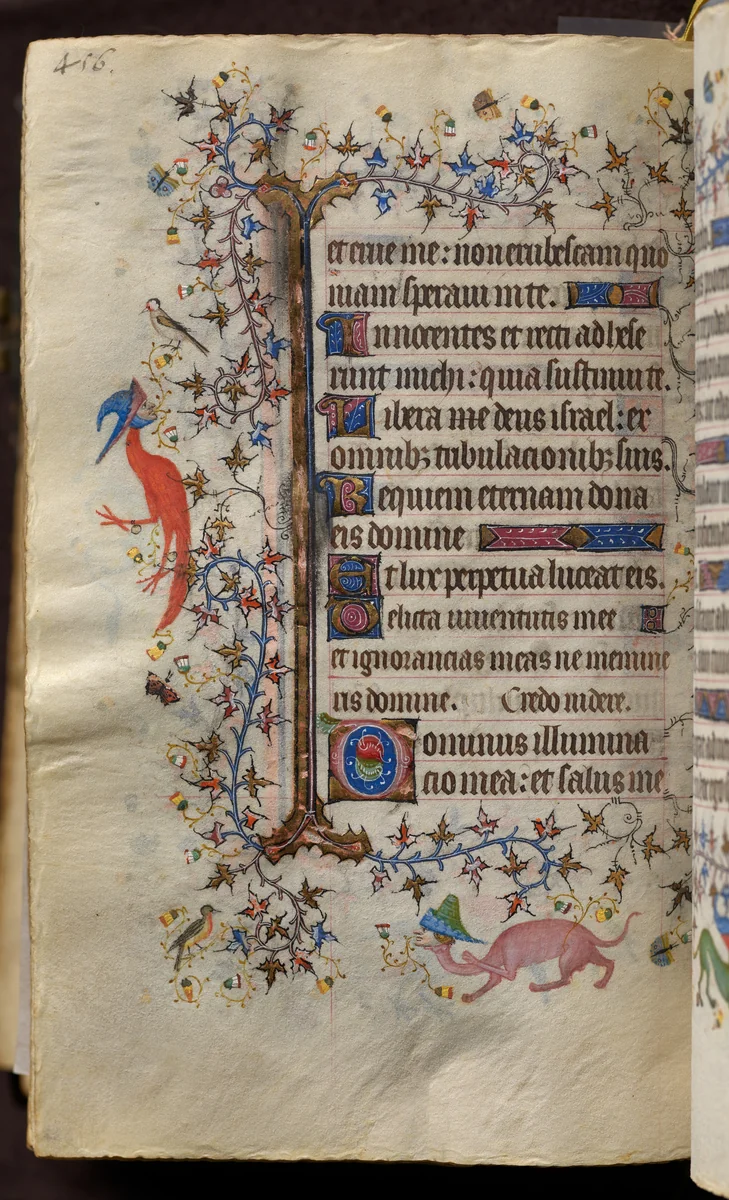 456.
et erue me: non erubescam quo
niam speraui in te.
Innocentes et recti adhese
runt michi: quia sustinui te.
Libera me deus israel: ex
omnibꝫ tribulacionibꝫ suis.
Requiem eternam dona
eis domine
Et lux perpetua luceat eis.
Delicta iuuentutis mee
et ignorancias meas ne memine
ris domine. Credo uidere.
Dominus illumina
cio mea: et salus me